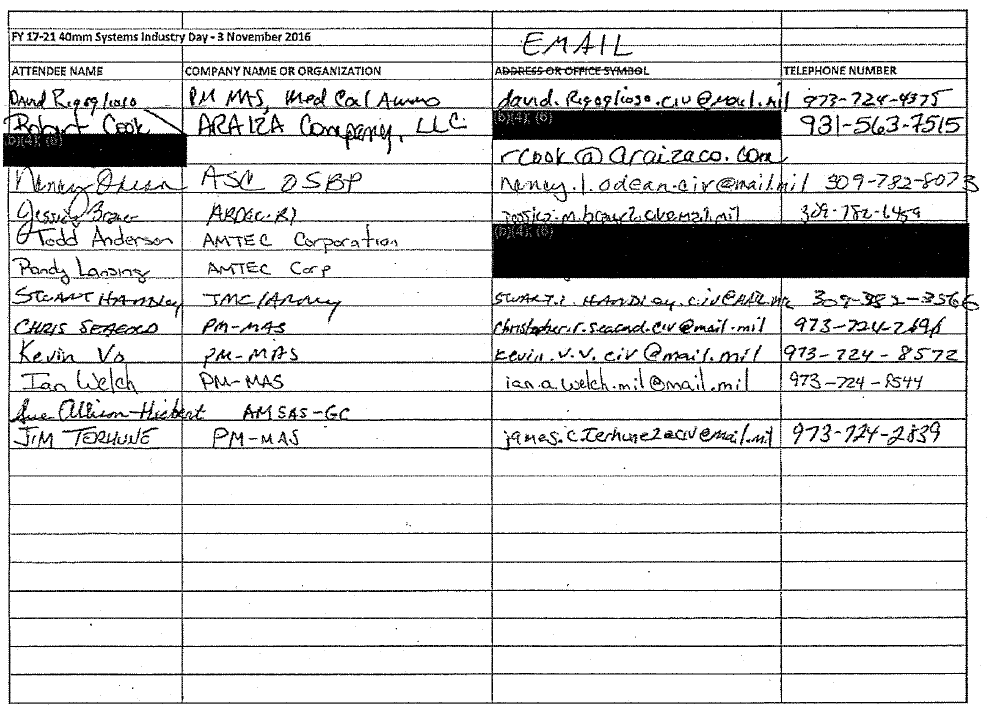 FY 17-21 40mm Systems Industry Day - 3 November 2016
EMAIL
ATTENDEE NAME COMPANY NAME OR ORGANIZATION ADDRESS OR OFFICE SYMBOL TELEPHONE NUMBER
David Rigoglioso PM MAS, Med Cal Ammo david.Rigoglioso.civ@mail.mil 973-724-4375
Robert Cook ARAIZA Company, LLC (b)(4), (6) 931-563-7515
(b)(4), (6) rcook@araizaco.com
Nancy ASC OSBP nancy.l.odean.civ@mail.mil 309-782-8073
Jessica ARDEC-RI
Todd Anderson AMTEC Corporation (b)(4), (6)
Randy Lansing AMTEC Corp
STUART HANDLEY JMC/Army
CHRIS SEACORD PM-MAS christopher.r.seacord.civ@mail.mil
Kevin Vo PM-MAS kevin.v.v.civ@mail.mil 973-724-8572
Ian Welch PM-MAS ian.a.welch.mil@mail.mil 973-724-8544
Sue Allison-Hiebert AMSAS-GC
JIM TERHUNE PM-MAS 973-724-2839